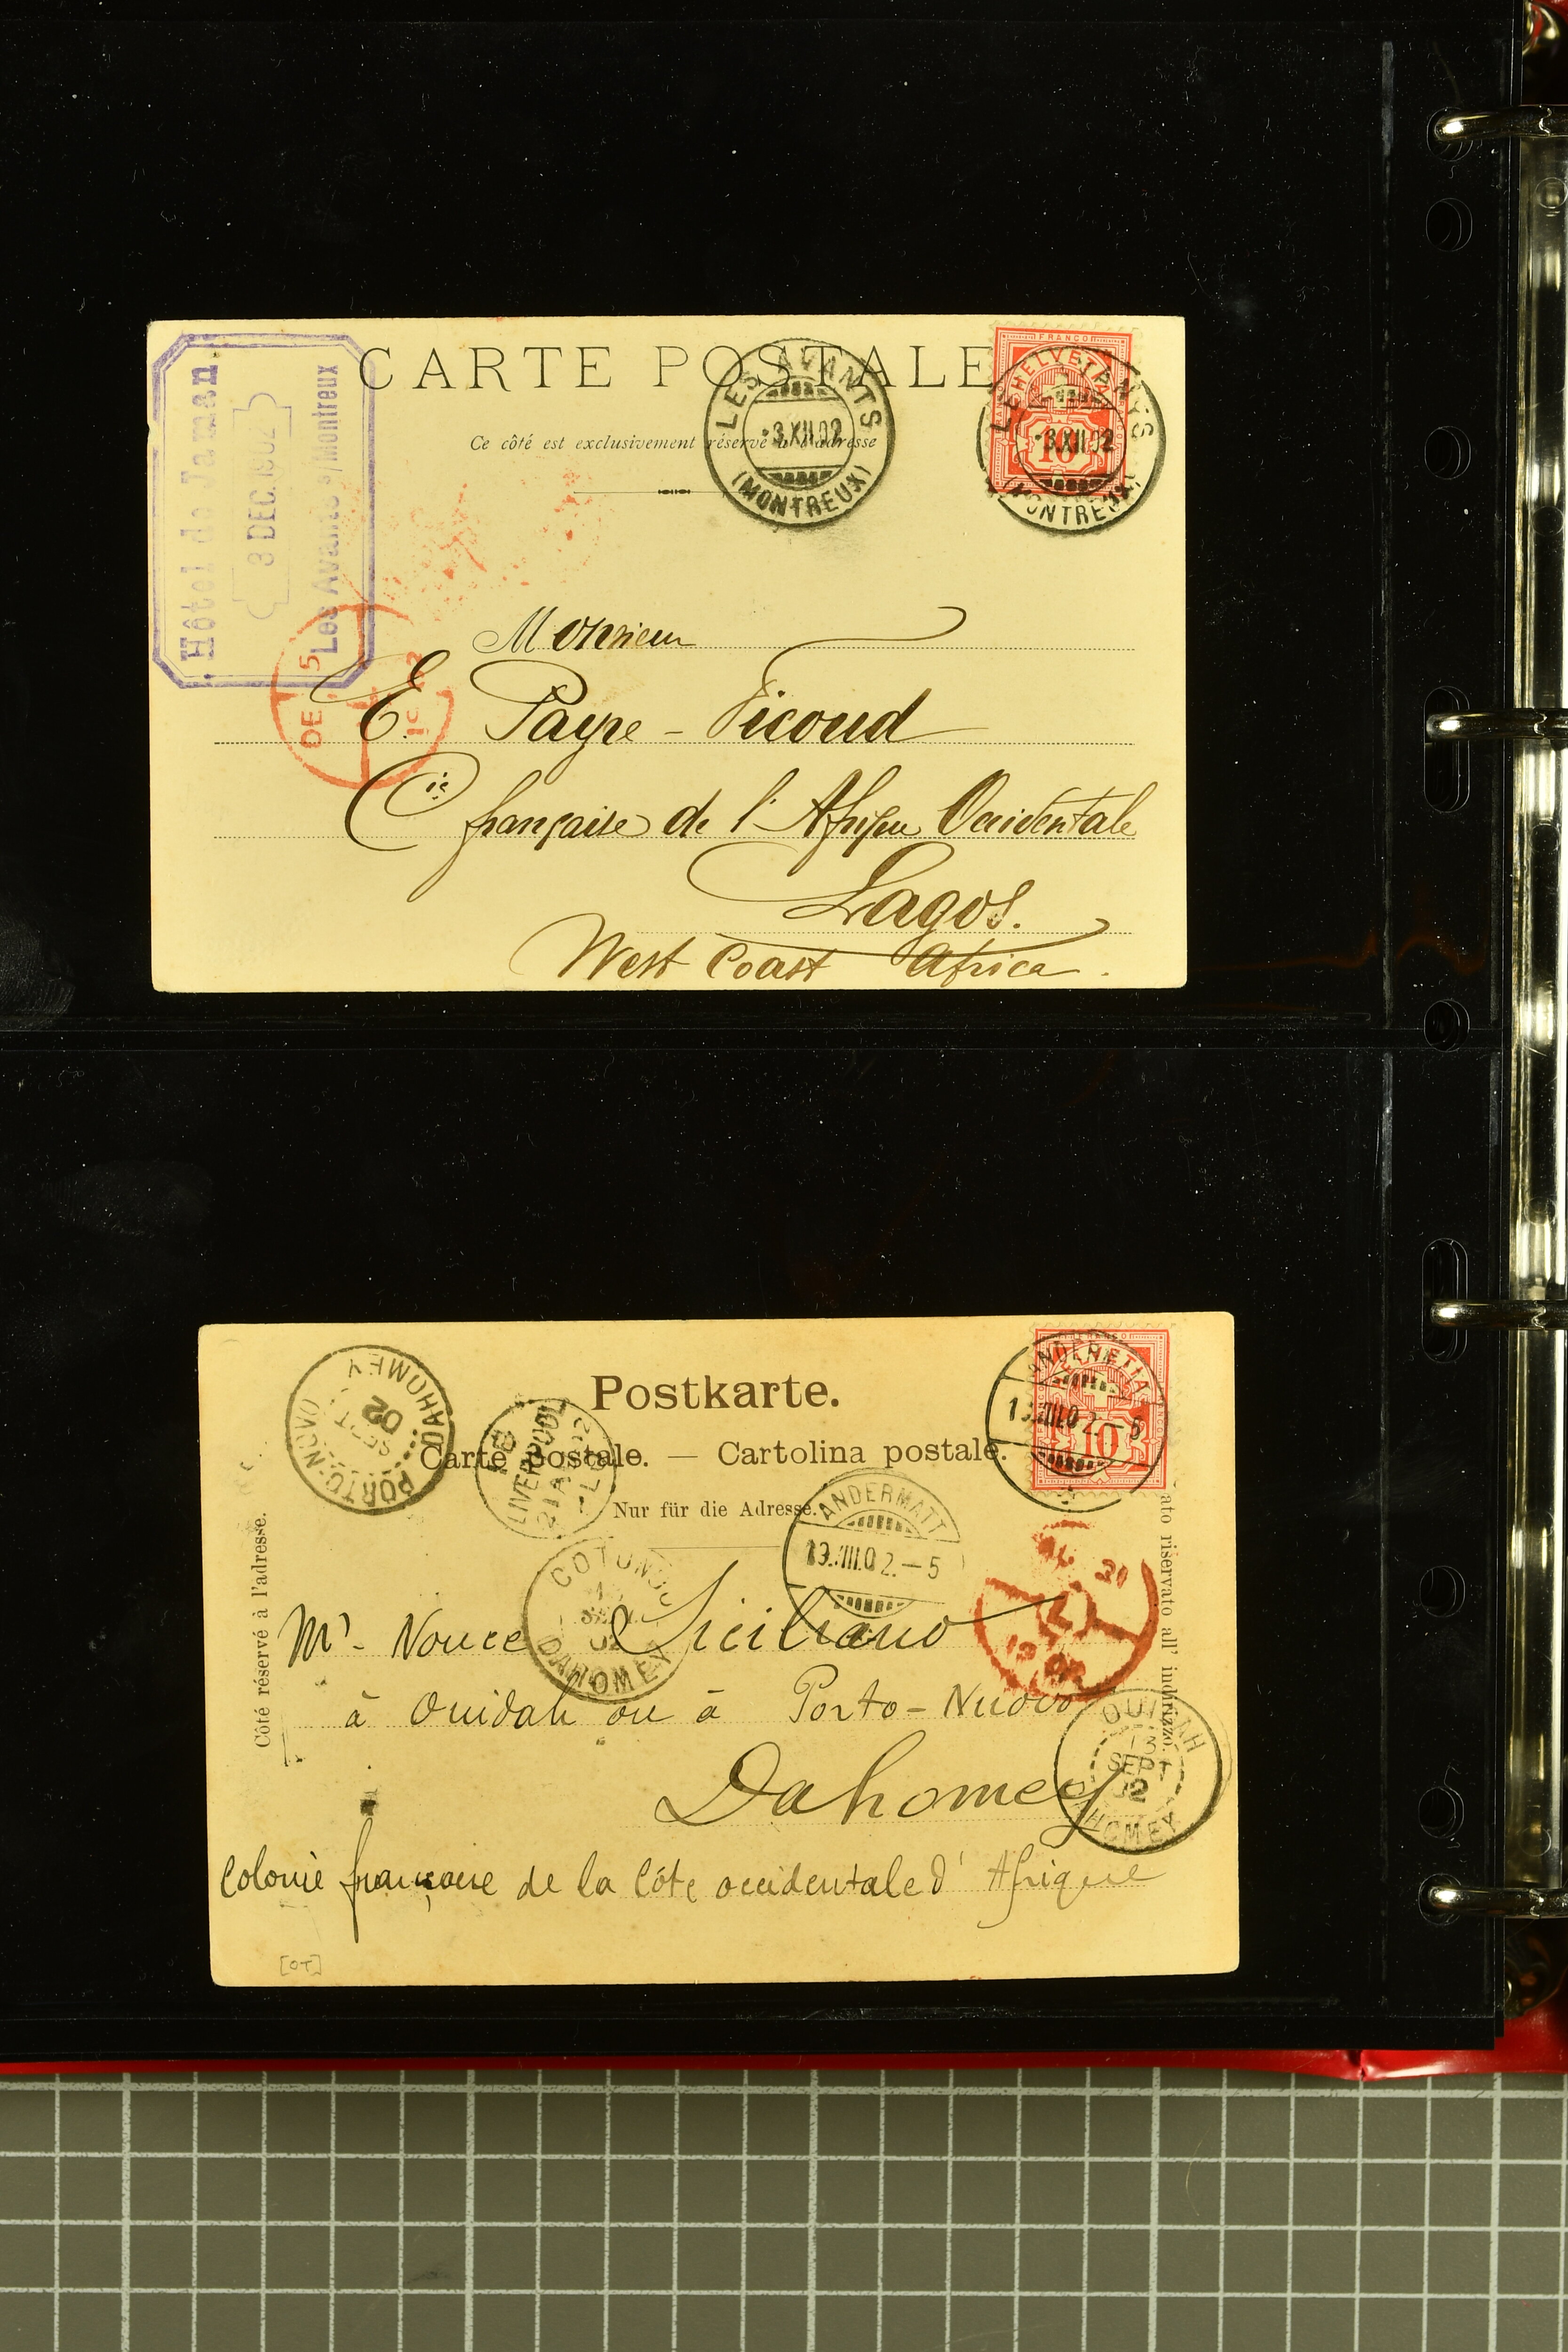 CARTE POSTALE
Ce côté est exclusivement réservé à l'adresse
Hôtel de Jaman
3 DEC. 1902
Les Avants s/Montreux
LES AVANTS
-3.XII.02
(MONTREUX)
FRANCO
HELVETIA
10
LES AVANTS
-3.XII.02
(MONTREUX)
DE 5
L
19 02
Monsieur
E. Payre-Ficoud
Cie française de l'Afrique Occidentale
Lagos.
West Coast Africa.
Postkarte.
Carte postale. — Cartolina postale.
Nur für die Adresse.
Côté réservé à l'adresse.
ato riservato all' indirizzo.
PORTO-NOVO
SEPT
02
DAHOMEY
LIVERPOOL
21 AU 02
HELVETIA
10
ANDERMATT
ANDERMATT
19.VIII.02.-5
COTONOU
02
DAHOMEY
L
19 02
OUIDAH
13
SEPT
02
DAHOMEY
Mr. Nonce Siciliano
à Ouidah ou à Porto-Nuovo
Dahomey
Colonie française de la Côte occidentale d'Afrique
[OT]